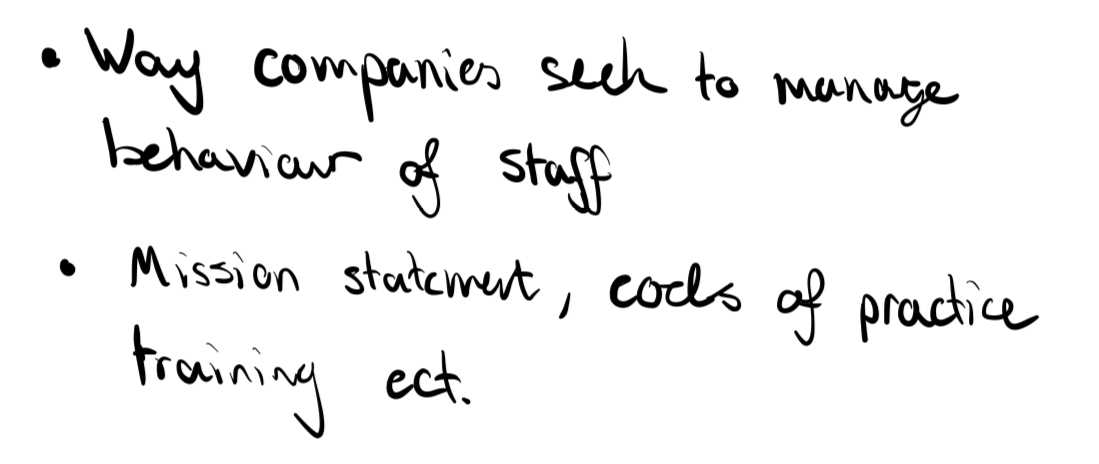 • Way companies seek to manage
behaviour of staff
• Mission statement, codes of practice
training ect.